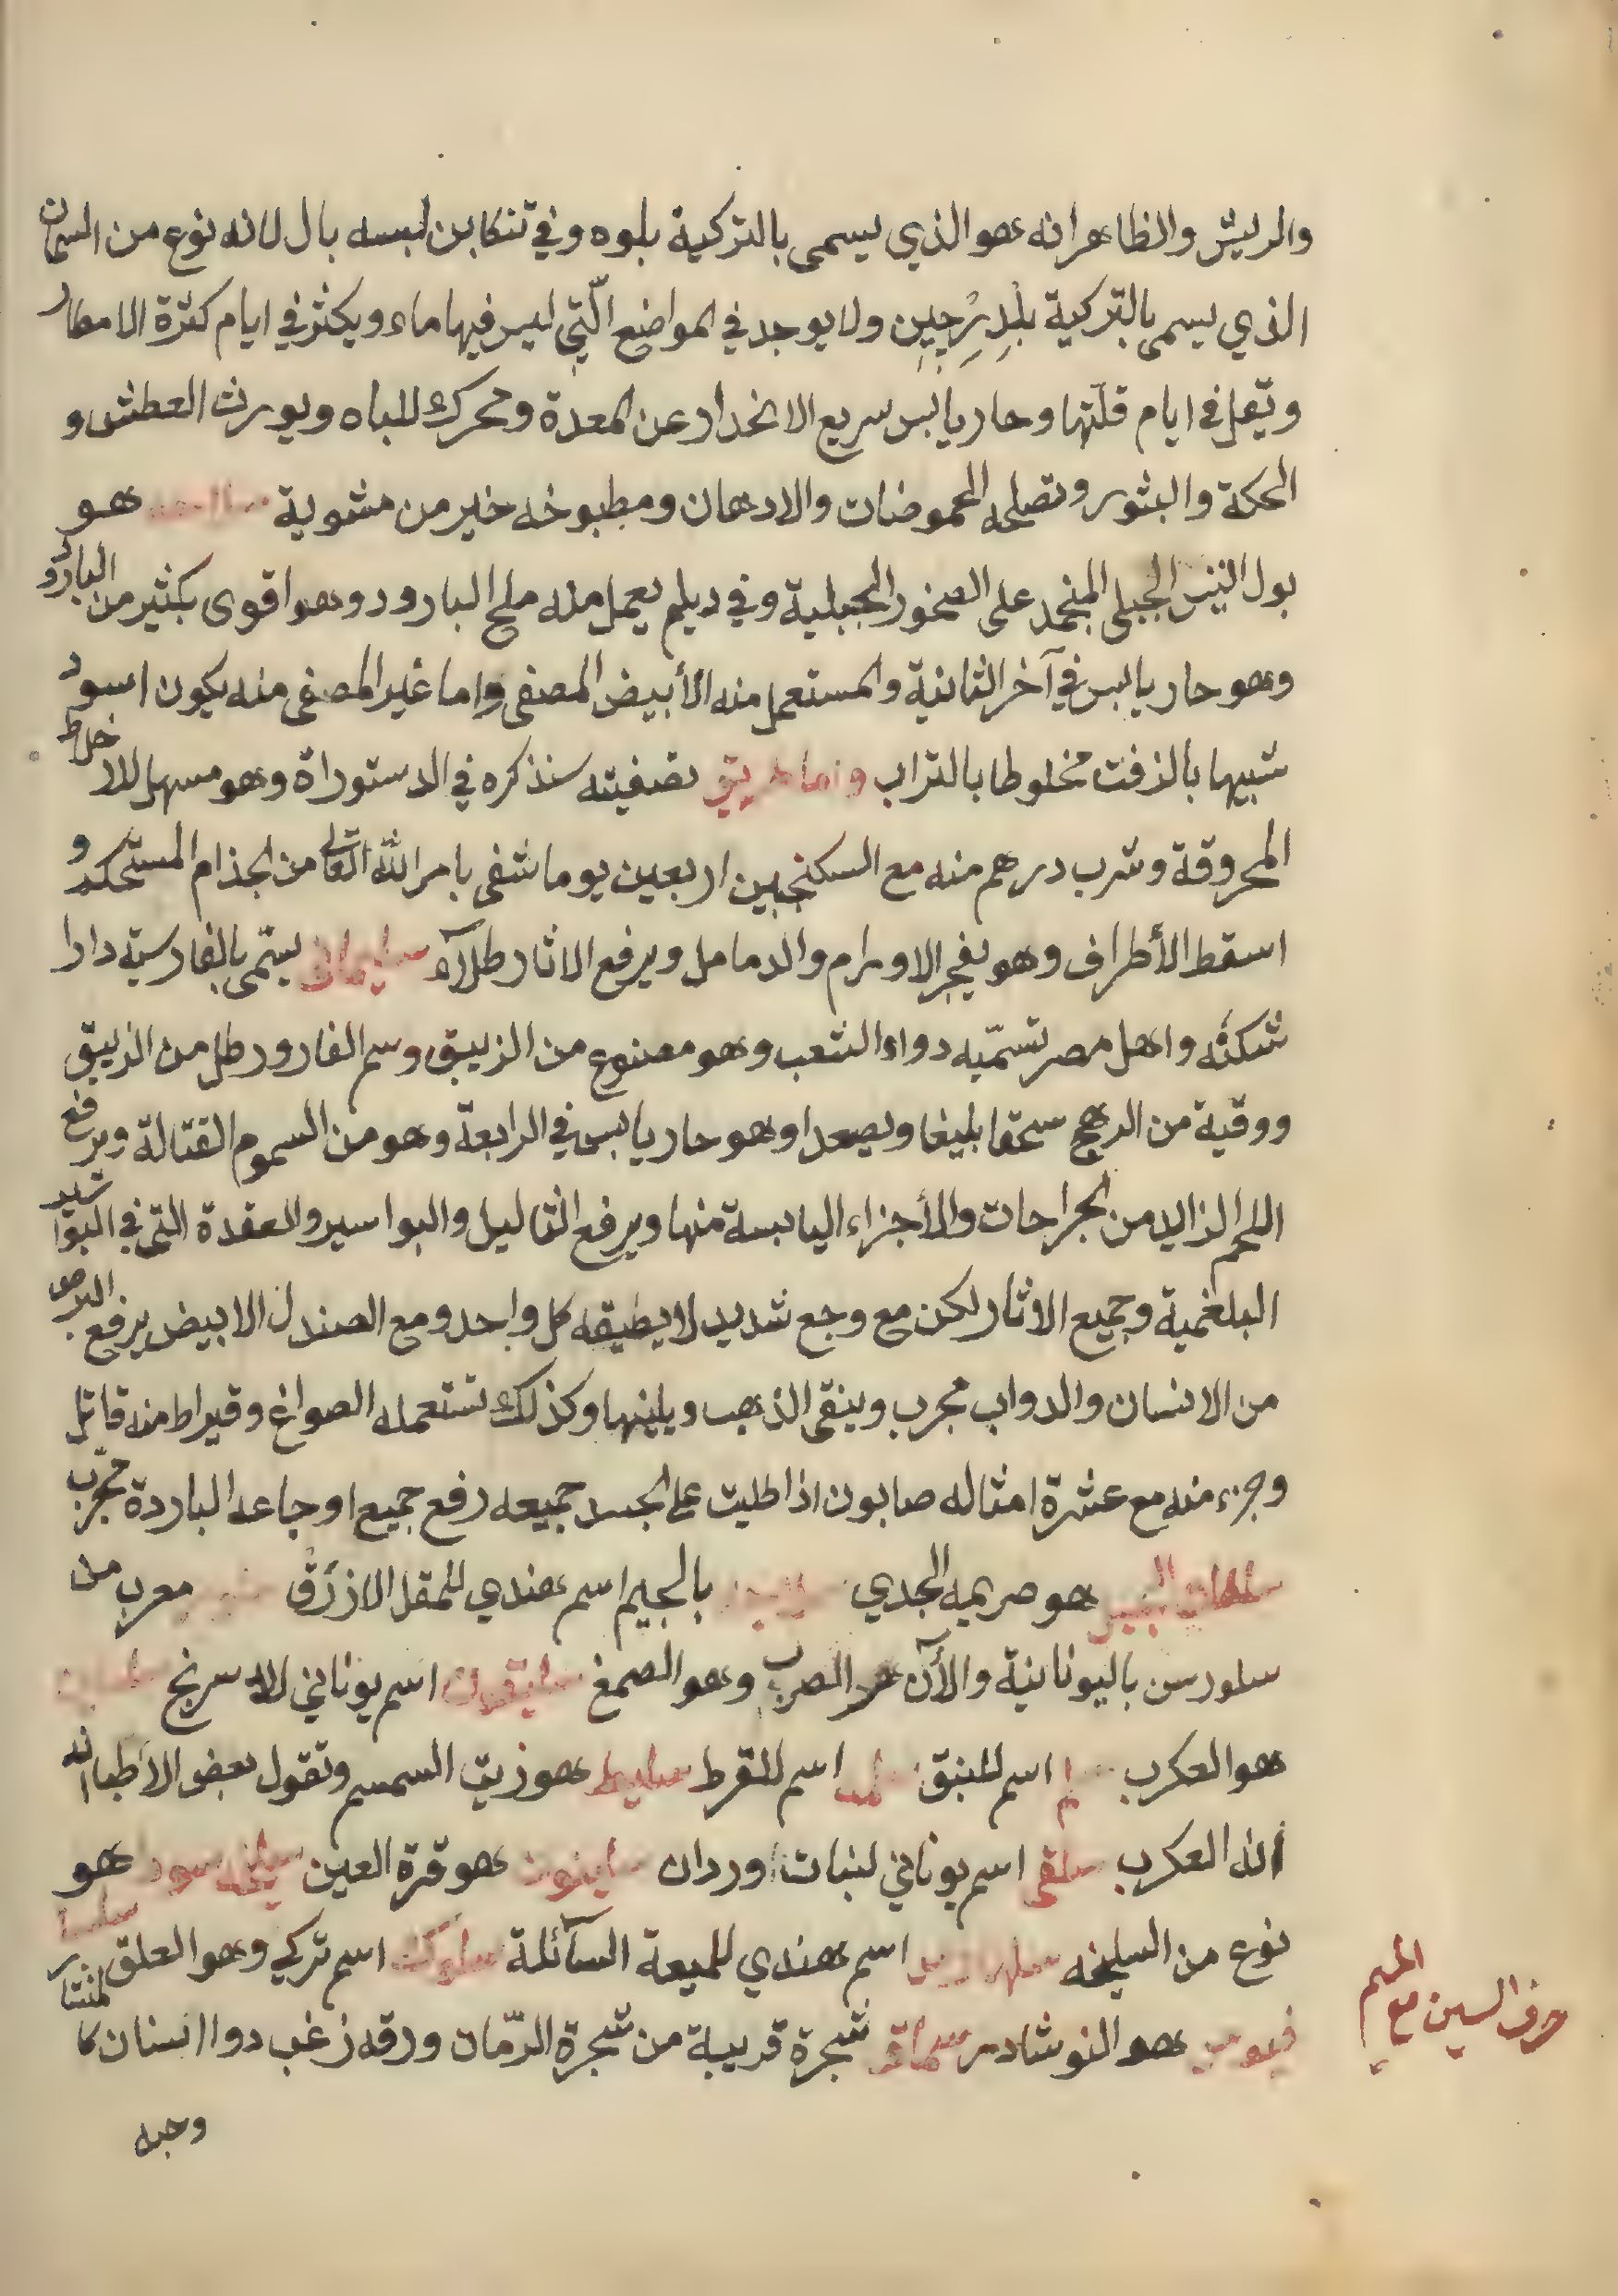 والريش والظاهر انه هو الذي يسمى بالتركية بلوه وفي تنكابن لبسه بال لانه نوع من السمان
الذي يسمى بالتركية بلدرجين ولا يوجد في المواضع الّتي ليس فيها ماء ويكثر في ايام كثرة الامطار
ويقل في ايام قلّتها وحار يابس سريع الانحدار عن المعدة ومحرك للباه ويورث العطش و
الحكة والبثور وتصلحه الحموضات والادهان ومطبوخه خير من مشوية هو
بول التيس الجبلي المنجمد على الصخور الجبلية وفي ديلم يعمل منه ملح البارود وهو اقوى بكثير من البارود
وهو حار يابس في آخر الثانية والمستعمل منه الأبيض المصفى واما غير المصفى منه يكون اسود
شبيها بالزفت مخلوطا بالتراب واما طريق تصفيته سنذكره في الدستوراة وهو مسهل للاخلاط
المحروقة وشرب درهم منه مع السكنجبين اربعين يوما شفى بامر الله تعالى من الجذام المستحكم و
اسقط الأطراف وهو يفجر الاورام والدمامل ويرفع الاثار طلآء سليماني يسّمى بالفارسيّة دارا
شكنه واهل مصر تسمّيه دواء الشعب وهو مصنوع من الزيبق وسم الفار ورطل من الزيبق
ووقية من الرهج سحقا بليغا ويصعدا وهو حار يابس في الرابعة وهو من السموم القتالة ويرفع
اللحم الزايد من الجراحات والأجزاء اليابسة منها ويرفع الثاليل والبواسير والعقدة التي في البواسير
البلغمية وجميع الاثار لكن مع وجع شديد لا يطيقه كل واحد ومع الصندل الابيض يرفع البرص
من الانسان والدواب مجرب وينقى الذهب ويلينها وكذلك تستعمله الصواغ وقيراط منه قاتل
وجزء منه مع عشرة امثاله صابون اذا طليت على الجسد جميعه رفع جميع اوجاعه الباردة مجرّب
سلطان الجبل هو صريمه الجدي بالجيم اسم هندي للمقل الازرق معرب من
سلورس باليونانية والآن هو الصرب وهو الصمغ سليقون اسم يوناني للاسرنج
هو العكرب اسم للنبق اسم للقرط سليط هو زيت السمسم وتقول بعض الاطباانه
انه العكرب سلقى اسم يوناني لنبات اوردان هو قرة العين هو
نوع من السليخه اسم هندي للميعة السآئلة سلوك اسم تركي وهو العلق
هو النوشادر سماق شجرة قريبة من شجرة الرّمان ورقه زغب دوا اسنان كالمنشار
وحبه
حرف السين مع الميم